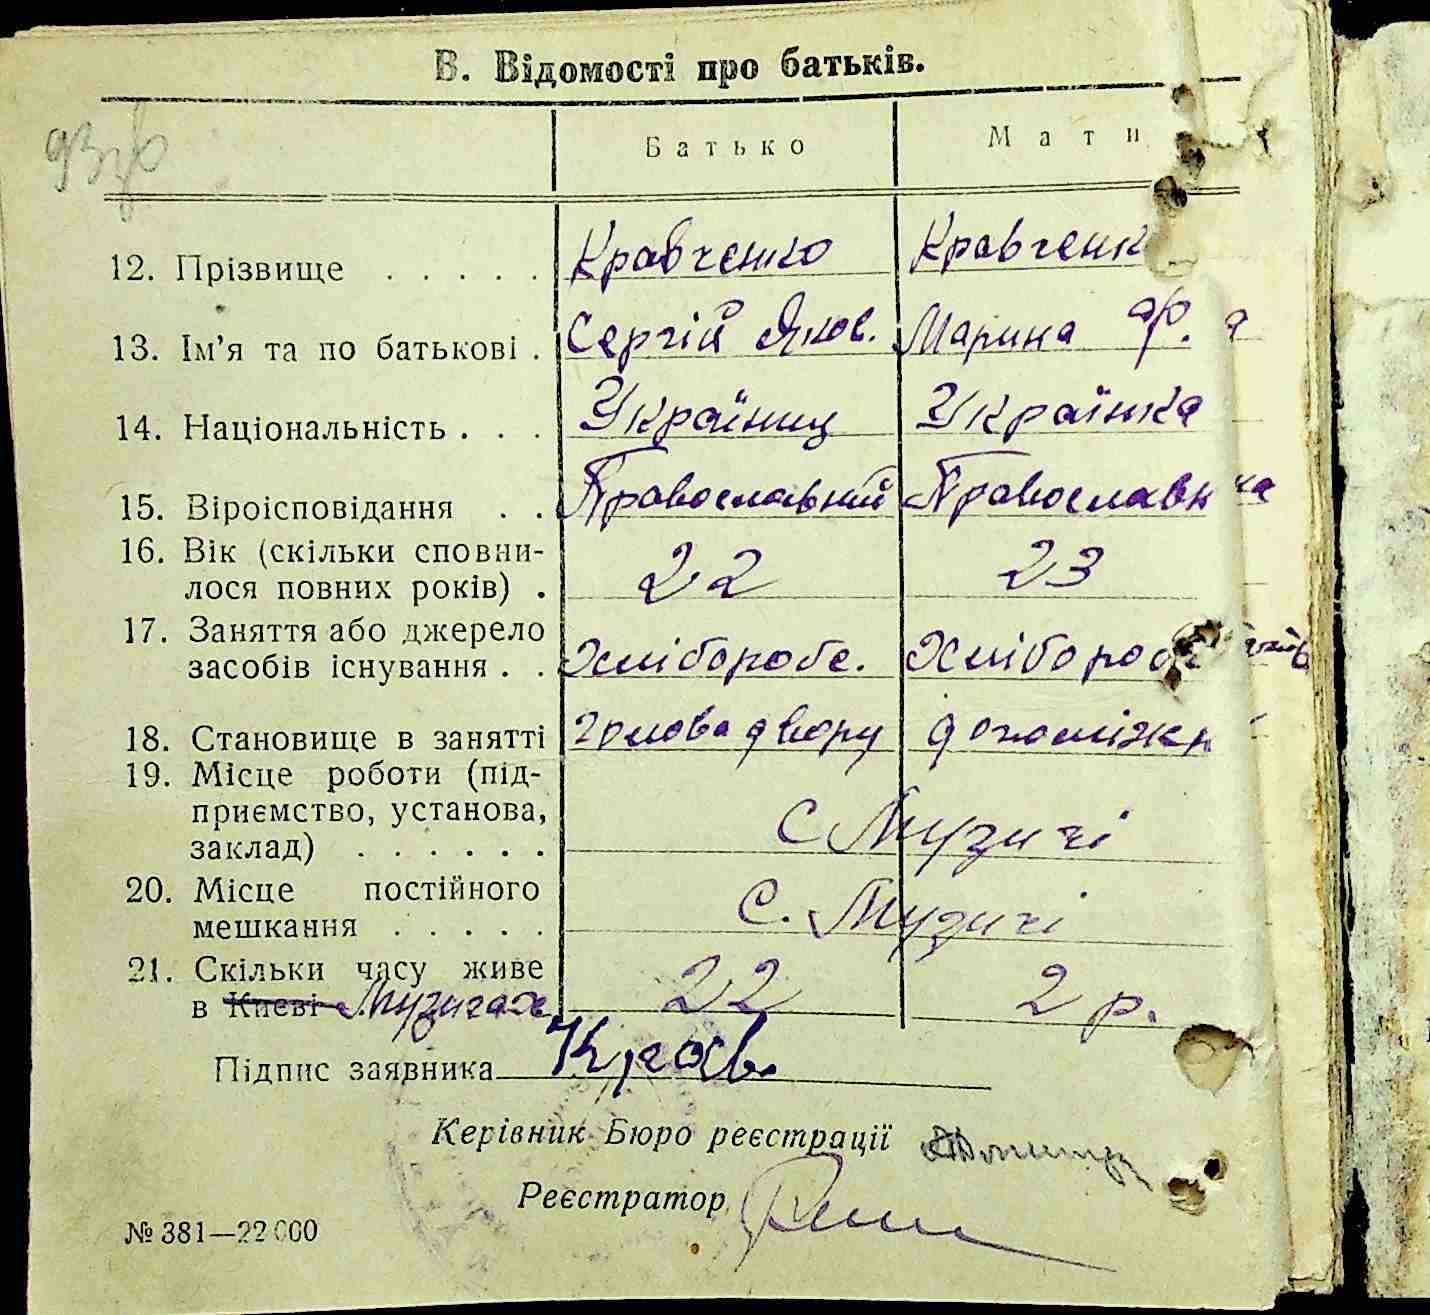 В. Відомості про батьків.
Батько Мати
12. Прізвище . . . . . Кравченко Кравченк
13. Ім’я та по батькові . Сергій Яков. Марина Ф.
14. Національність . . . Українец Українка
15. Віроісповідання . . Православний Православн
16. Вік (скільки сповни-
лося повних років) . 22 23
17. Заняття або джерело
засобів існування . . Хліборобс. Хлібороб
18. Становище в занятті Голова двору допоміжн
19. Місце роботи (під-
приємство, установа,
заклад) . . . . . . С Музичі
20. Місце постійного
мешкання . . . . . С. Музичі
21. Скільки часу живе
в Києві Музичах 22 2 р.
Підпис заявника Крав.
Керівник Бюро реєстрації
Реєстратор
№ 381—22000